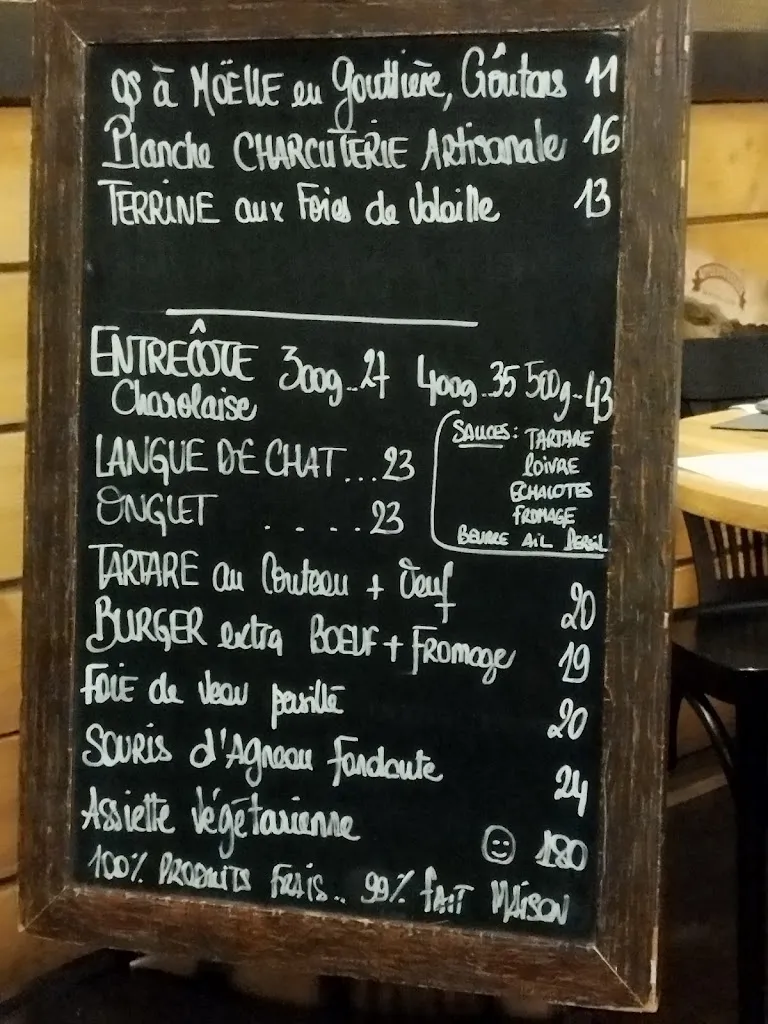 OS à MOËLLE en Gouttière, Croûtons 11
Planche CHARCUTERIE Artisanale 16
TERRINE aux Foies de Volaille 13
ENTRECÔTE 300g..27 400g..35 500g..43
Charolaise
LANGUE DE CHAT...23
ONGLET ....23
SAUCES: TARTARE
POIVRE
ECHALOTES
FROMAGE
BEURRE AIL PERSIL
TARTARE au Couteau + Oeuf 20
BURGER extra BOEUF + Fromage 19
FOIE de Veau persillé 20
SOURIS d'Agneau fondante 24
Assiette Végétarienne ☺ 180
100% PRODUITS FRAIS.. 99% FAIT MAISON